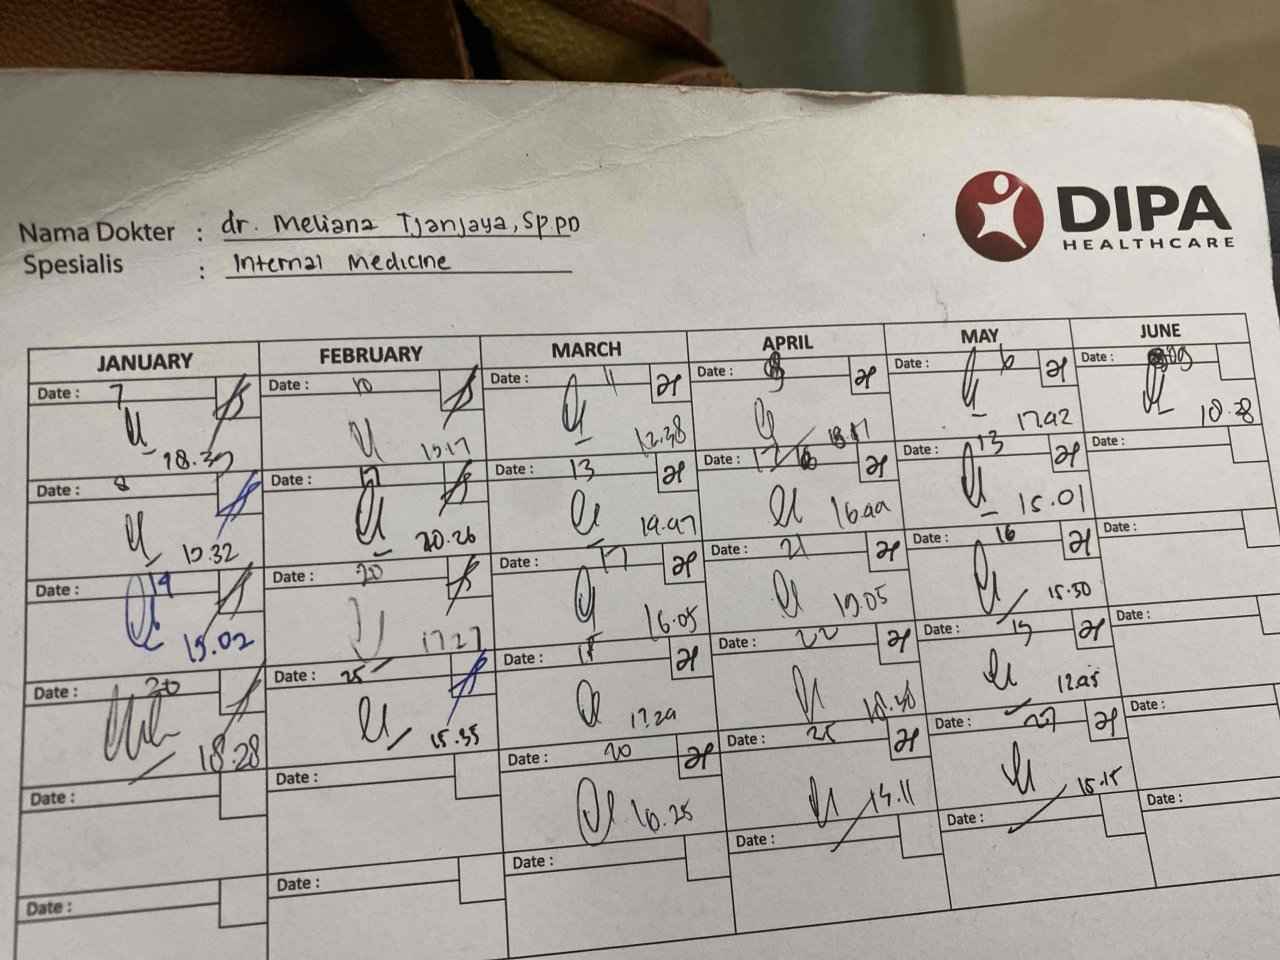 DIPA
HEALTHCARE
Nama Dokter : dr. Meliana Tjanjaya, Sp.PD
Spesialis : Internal Medicine
JANUARY FEBRUARY MARCH APRIL MAY JUNE
Date : 7 Date : 10 Date : 11 Date : Date : 6 Date : 09
18.37 15.17 12.38 18.17 17.42 18.28
Date : 8 Date : 17 Date : 13 Date : Date : 13 Date :
15.32 20.26 19.47 16.44 15.01
Date : 14 Date : 20 Date : 17 Date : 21 Date : 16 Date :
15.02 17.27 16.05 19.05 15.30
Date : 20 Date : 25 Date : Date : 22 Date : 19 Date :
18.28 15.35 17.29 18.30 12.45
Date : Date : Date : 20 Date : 25 Date : 27 Date :
16.25 15.15
Date : Date : Date : Date : Date : Date :